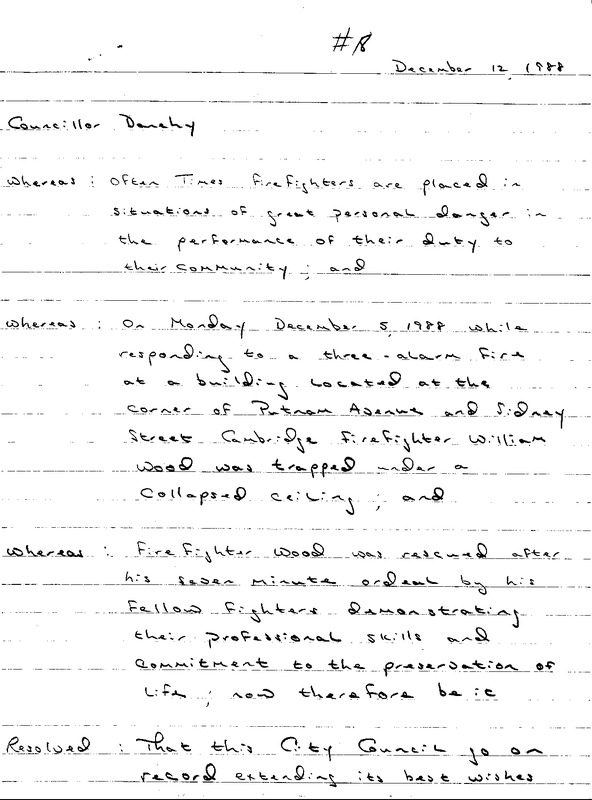 #18
December 12, 1988
Councillor Danehy
Whereas : Often Times firefighters are placed in
situations of great personal danger in
the performance of their duty to
their community ; and
Whereas : On Monday December 5, 1988 while
responding to a three-alarm fire
at a building located at the
corner of Putnam Avenue and Sidney
Street Cambridge Firefighter William
Wood was trapped under a
collapsed ceiling ; and
Whereas : Firefighter Wood was rescued after
his seven minute ordeal by his
fellow fighters demonstrating
their professional skills and
commitment to the preservation of
life ; now therefore be it
Resolved : That this City Council go on
record extending its best wishes